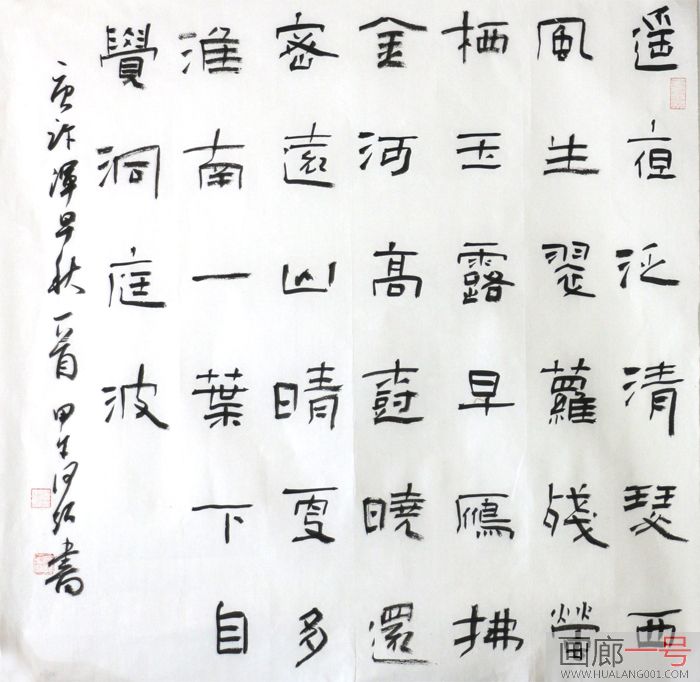 遥夜泛清瑟西
風生翠蘿殘螢
栖玉露早鴈拂
金河高尌曉還
密遠山晴更多
淮南一葉下自
覺洞庭波
唐许渾早秋一首 甲午 書
画廊一号
WWW.HUALANG001.COM